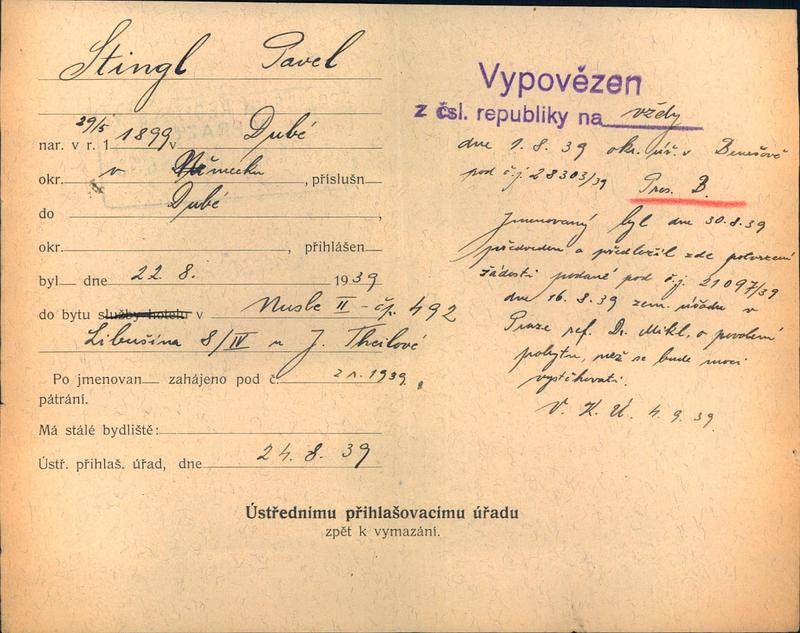 Stingl Pavel
nar. v r. 29/5 1899 v Dubé
okr. v Německu, příslušn
do Dubé,
okr. , přihlášen
byl dne 22. 8. 1939
do bytu služby hotelu v Nusle II - čp. 492
Libušina 8/IV u J. Theilové
Po jmenovan zahájeno pod č. z r. 1939,
pátrání.
Má stálé bydliště:
Ústř. přihlaš. úřad, dne 24. 8. 39
Vypovězen
z čsl. republiky na vždy
dne 1. 8. 39 okr. úř. v Benešově
pod č.j. 28303/39 Pres. B.
Jmenovaný byl dne 30.8.39
předveden a předložil zde potvrzení
žádosti podané pod č.j. 21097/39
dne 16.8.39 zem. úřadu v
Praze ref. Dr. Mikl, o povolení
pobytu, než se bude moci
vystěhovati.
V. K. Ú. 4. 9. 39.
Ústřednímu přihlašovacímu úřadu
zpět k vymazání.